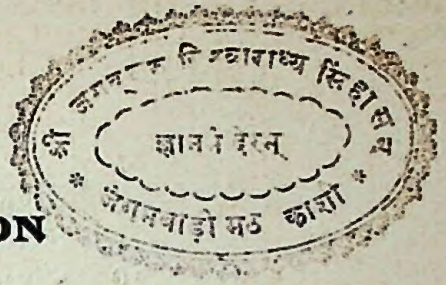 श्री जगद्गुरु विश्वाराध्य सिंहासन
ज्ञानमंदिरम्
* जंगमवाडी मठ काशी *
ON